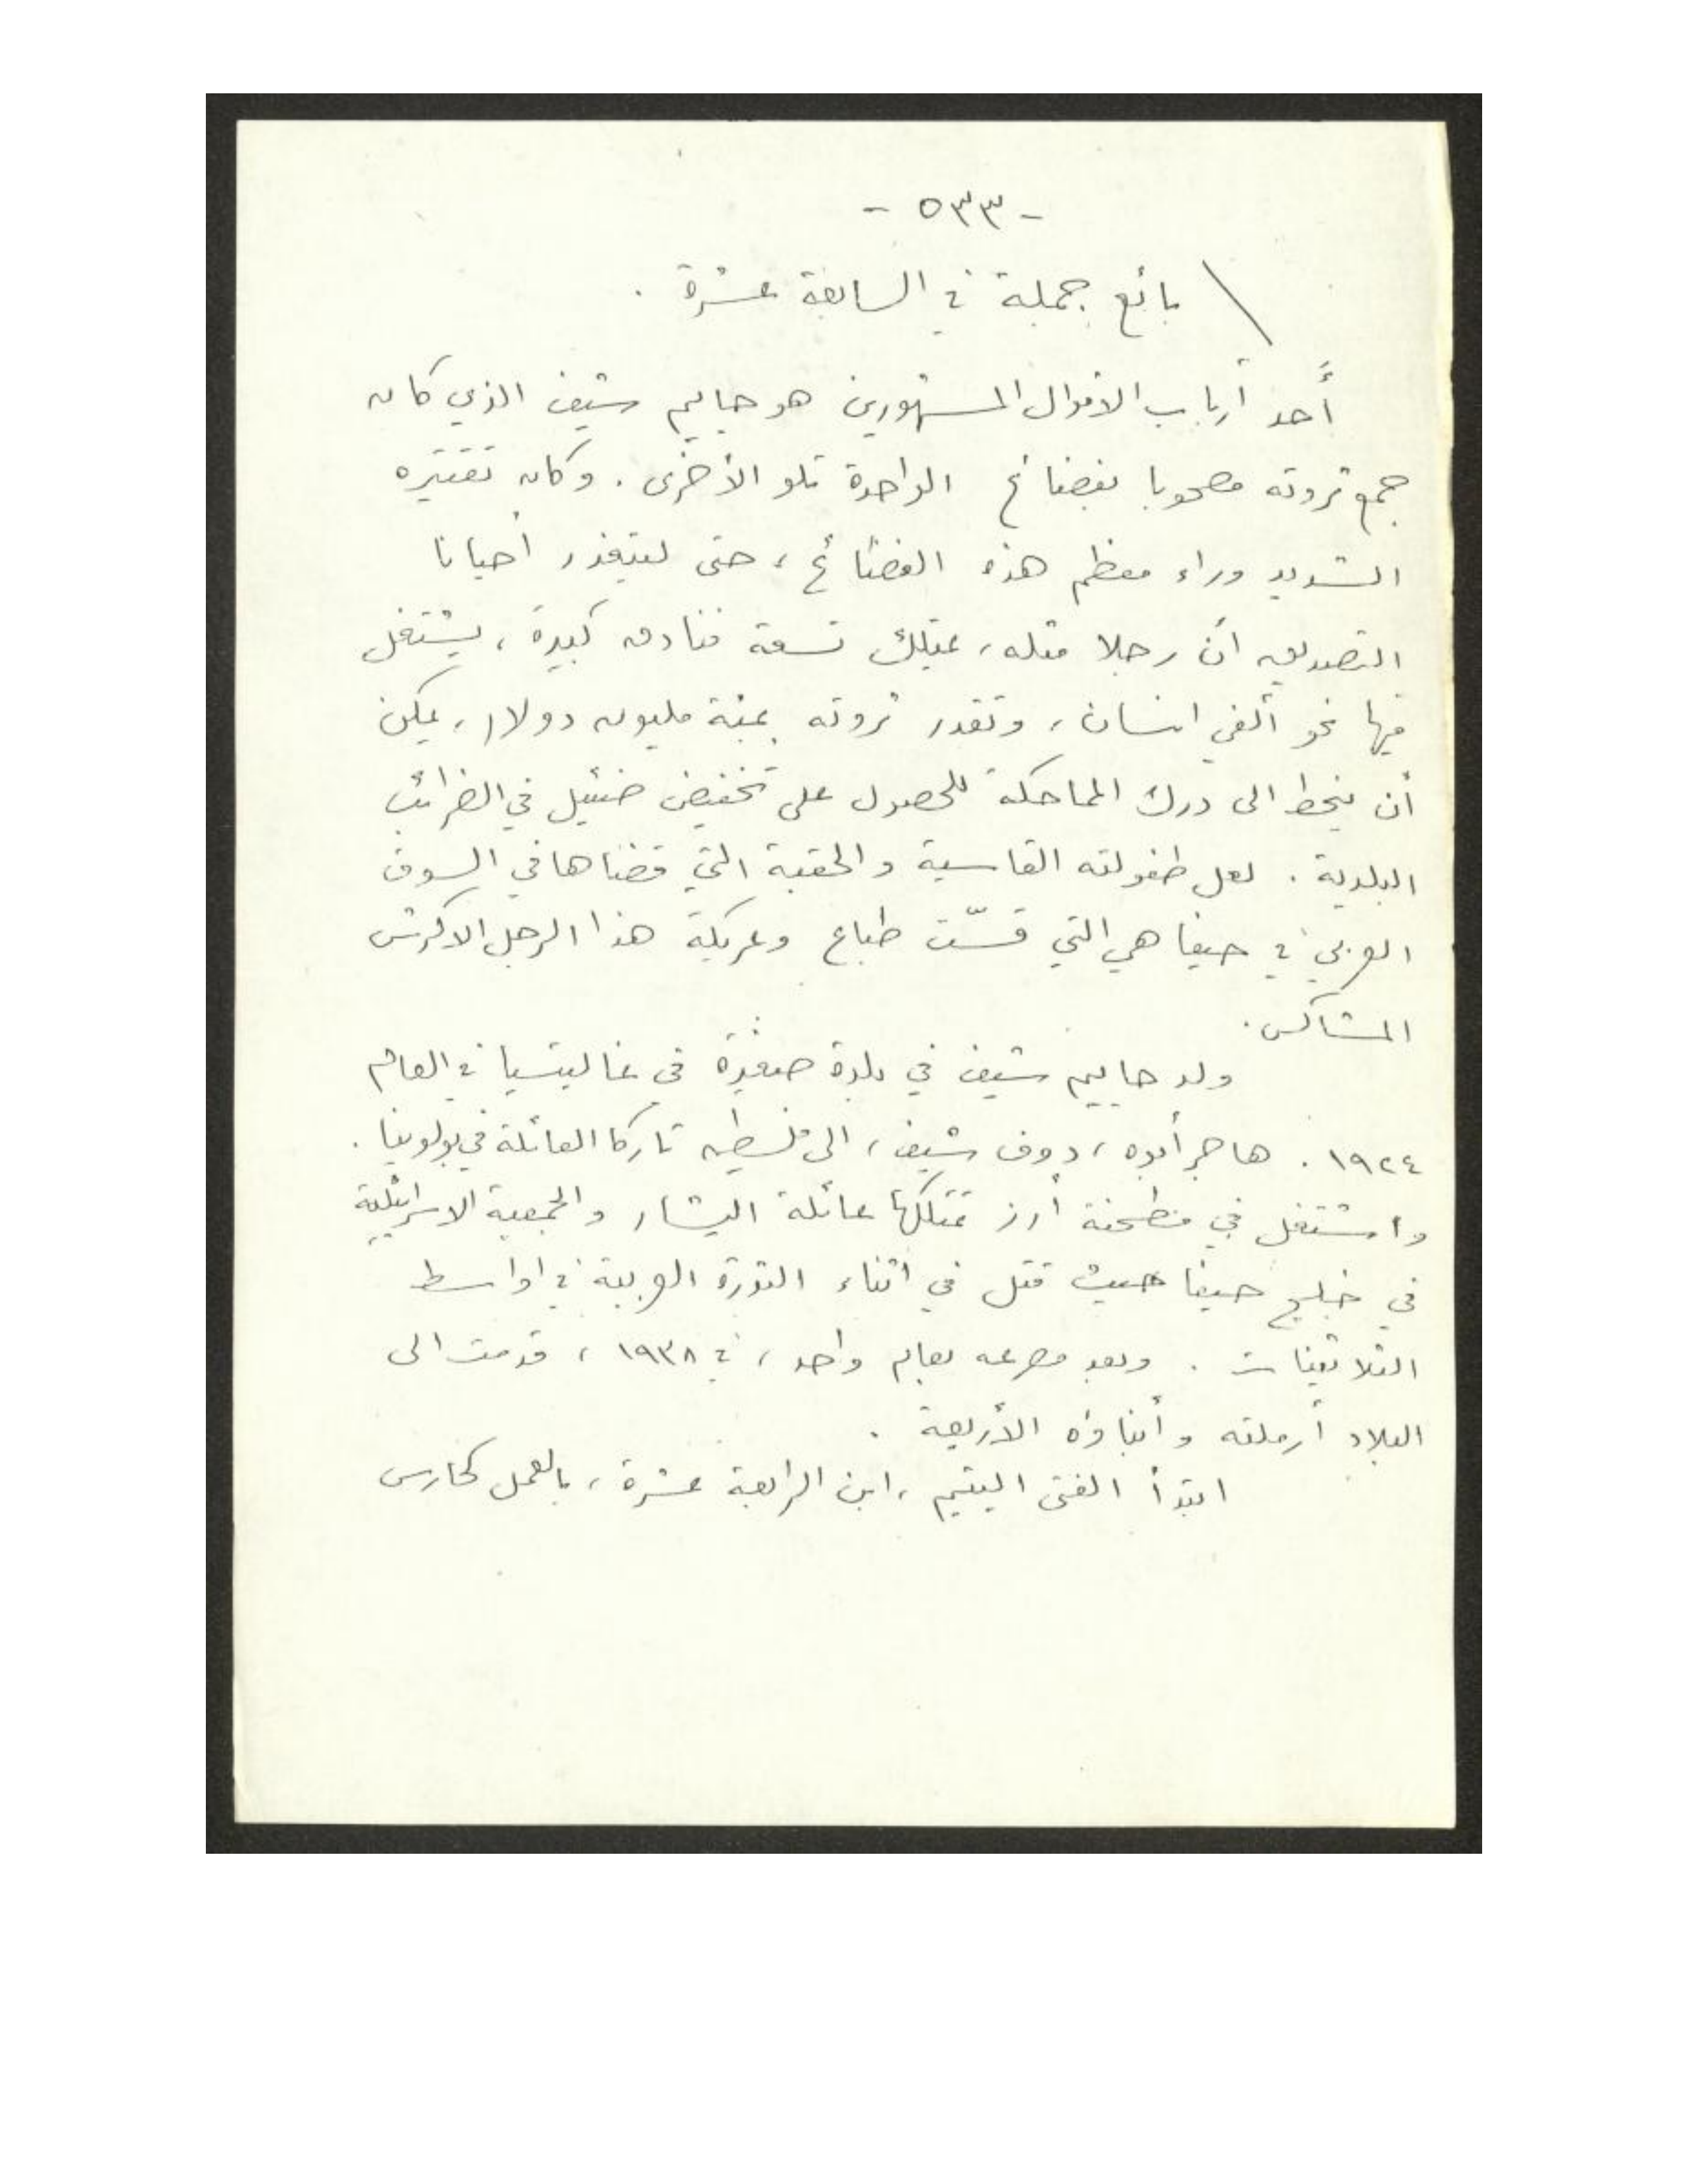 - ٥٣٣ -
بائع جملة في السابعة عشرة .
أحد أرباب الاموال المشهورين هو حاييم شيف الذي كان
جمع ثروته مصحوبا بفضائح الواحدة تلو الأخرى . وكان تقتيره
الشديد وراء معظم هذه الفضائح ، حتى ليتعذر أحيانا
التصديق ان رجلا مثله ، يمتلك تسعة فنادق كبيرة ، يشتغل
فيها نحو ألفي انسان ، وتقدر ثروته بمئة مليون دولار ، يمكن
أن ينحط الى درك المماحكة للحصول على تخفيض ضئيل في الضرائب
البلدية . لعل طفولته القاسية والحقبة التي قضاها في السوق
العربي في حيفا هي التي قسّت طباع وعريكة هذا الرجل الاكرش
المشاكس .
ولد حاييم شيف في بلدة صغيرة في غاليتسيا في العام
١٩٢٤ . هاجر أبوه ، دوف شيف ، الى فلسطين تاركا العائلة في بولونيا .
واشتغل في مطحنة أرز تمتلكها عائلة اليشار والجمعية الاسرائيلية
في خليج حيفا حيث قتل في اثناء الثورة العربية في اواسط
الثلاثينات . وبعد مصرعه بعام واحد ، في ١٩٣٨ ، قدمت الى
البلاد أرملته وأبناؤه الأربعة .
ابتدأ الفتى اليتيم ، ابن الرابعة عشرة ، بالعمل كحارس